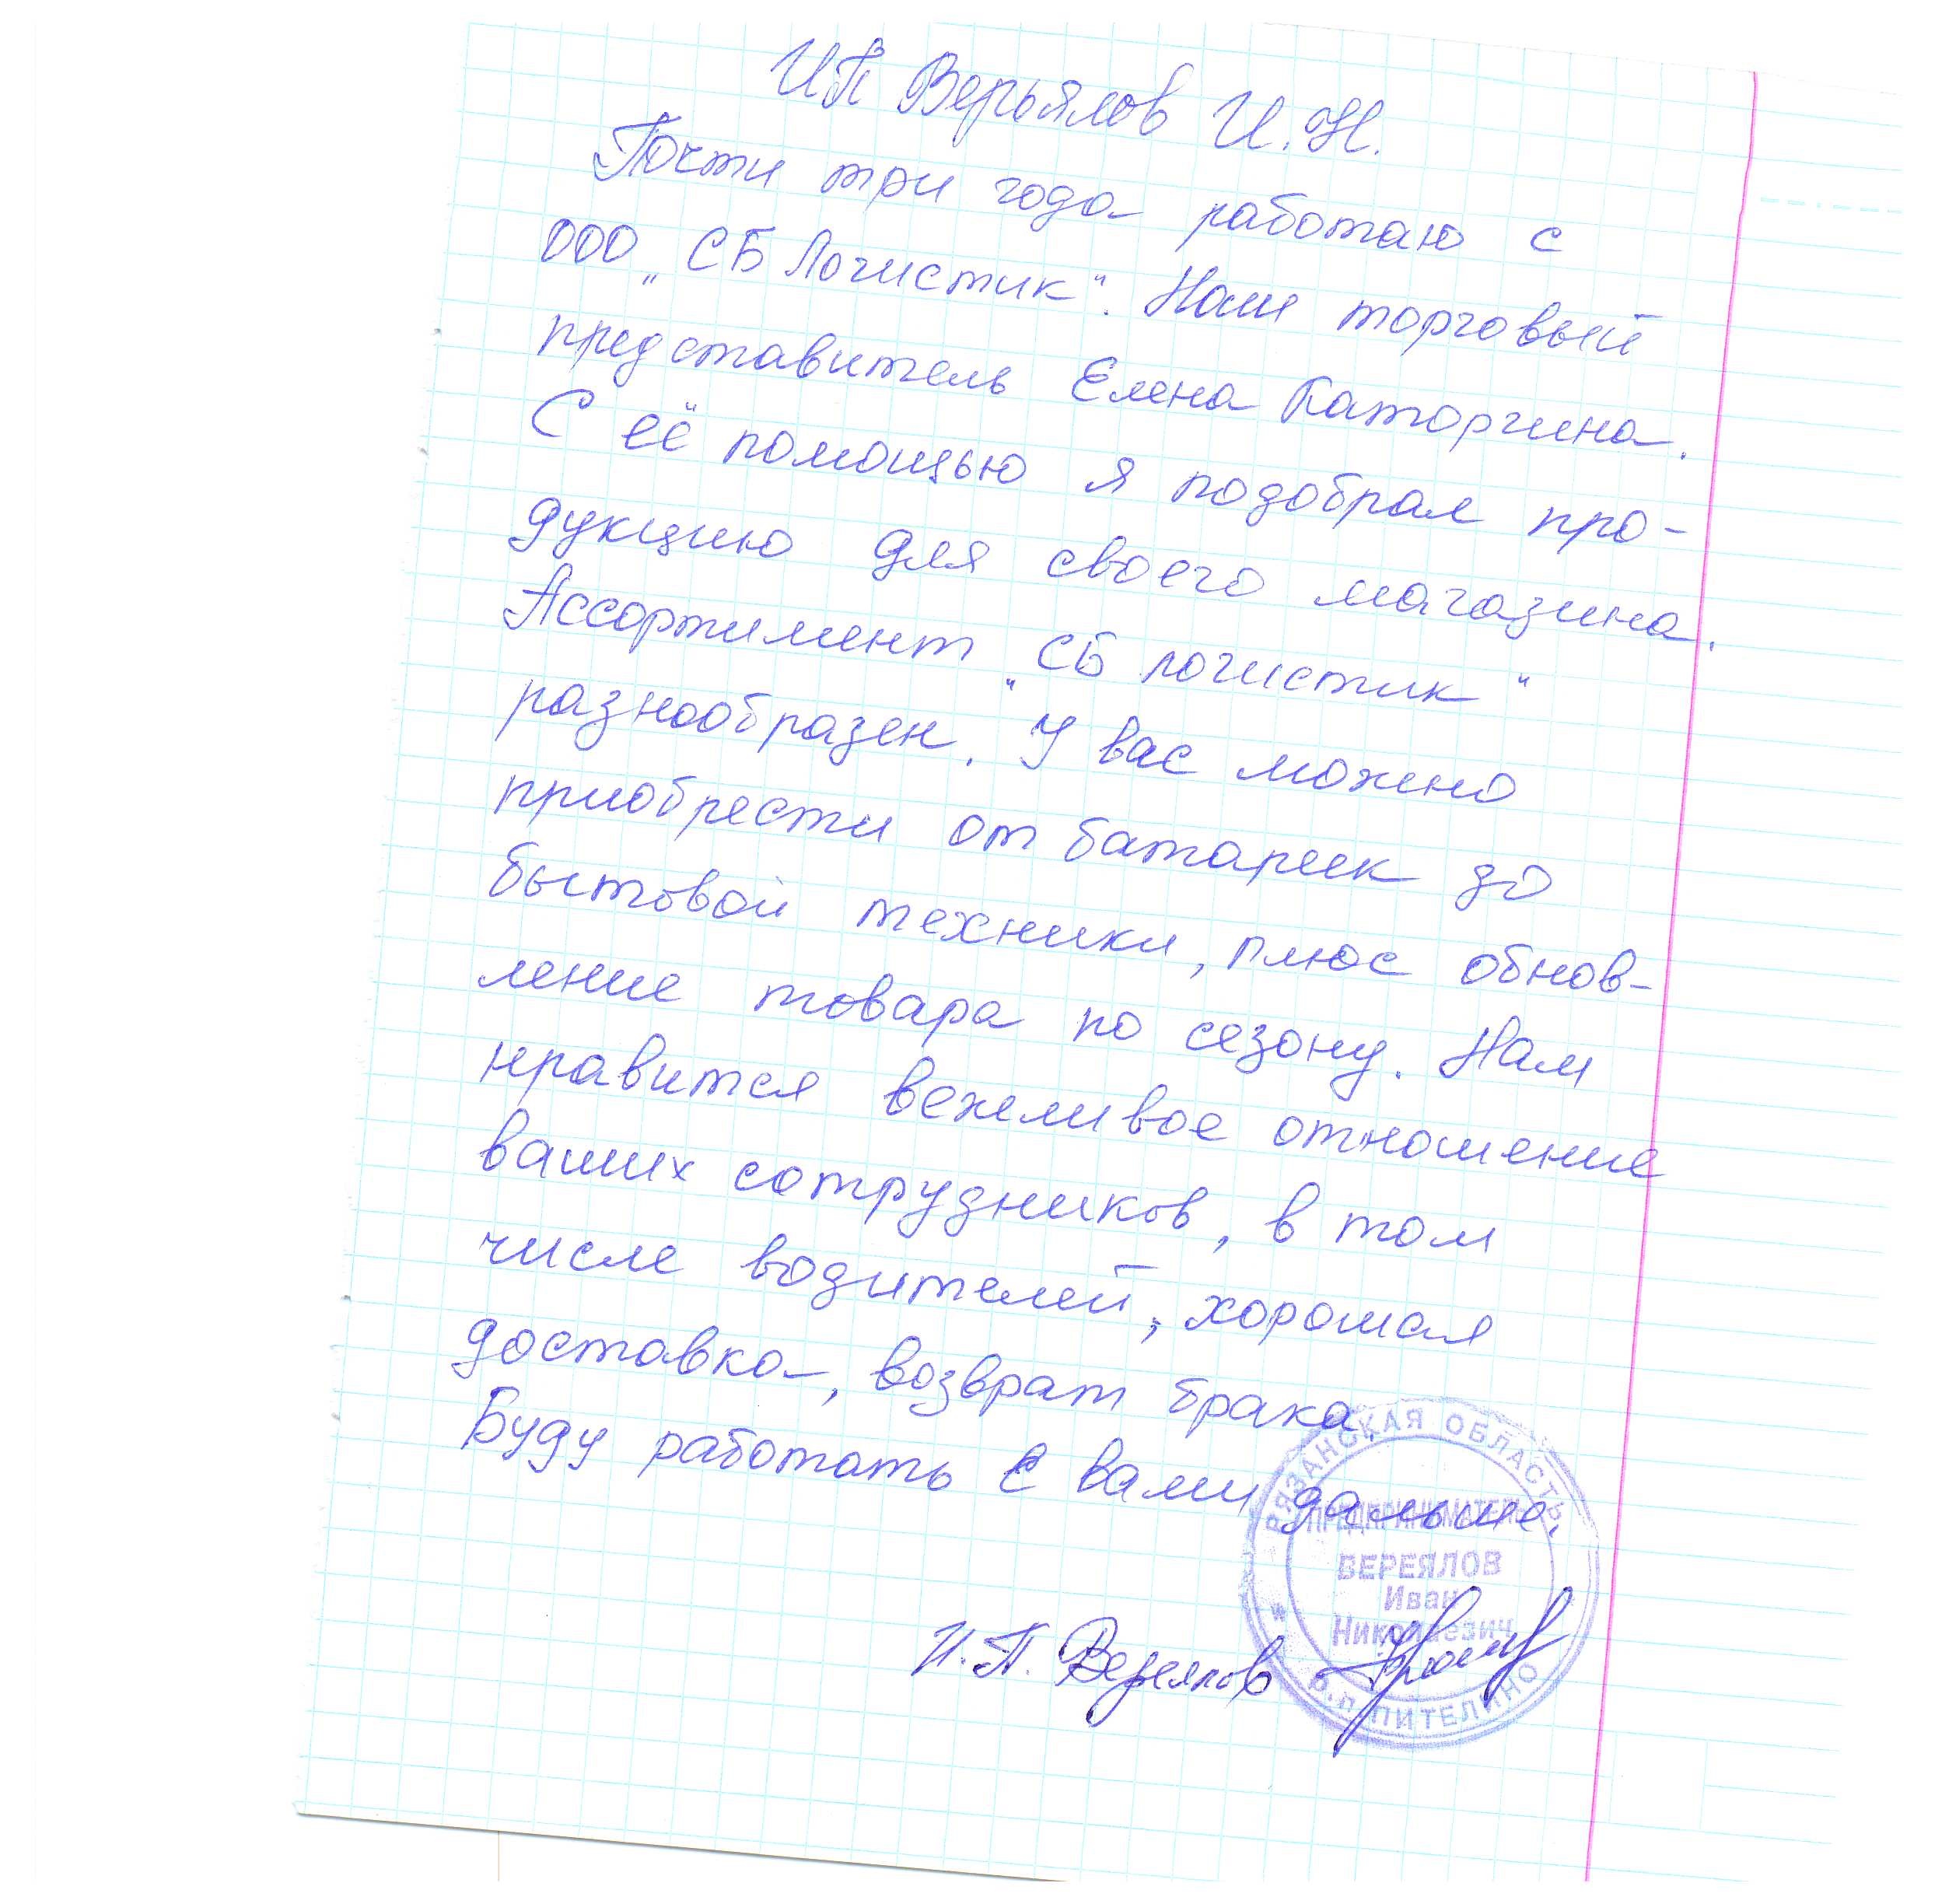 ИП Верьялов И.Н.
Почти три года работаю с
ООО „СБ Логистик“. Наш торговый
представитель Елена Каторгина.
С её помощью я подобрал про-
дукцию для своего магазина.
Ассортимент „СБ логистик“
разнообразен. У вас можно
приобрести от батареек до
бытовой техники, плюс обнов-
ление товара по сезону. Нам
нравится вежливое отношение
ваших сотрудников, в том
числе водителей, хорошая
доставка, возврат брака.
Буду работать с вами дальше.
И.П. Вереялов
РЯЗАНСКАЯ ОБЛАСТЬ
ПРЕДПРИНИМАТЕЛЬ
ВЕРЕЯЛОВ
Иван
Николаевич
* р.п. ПИТЕЛИНО